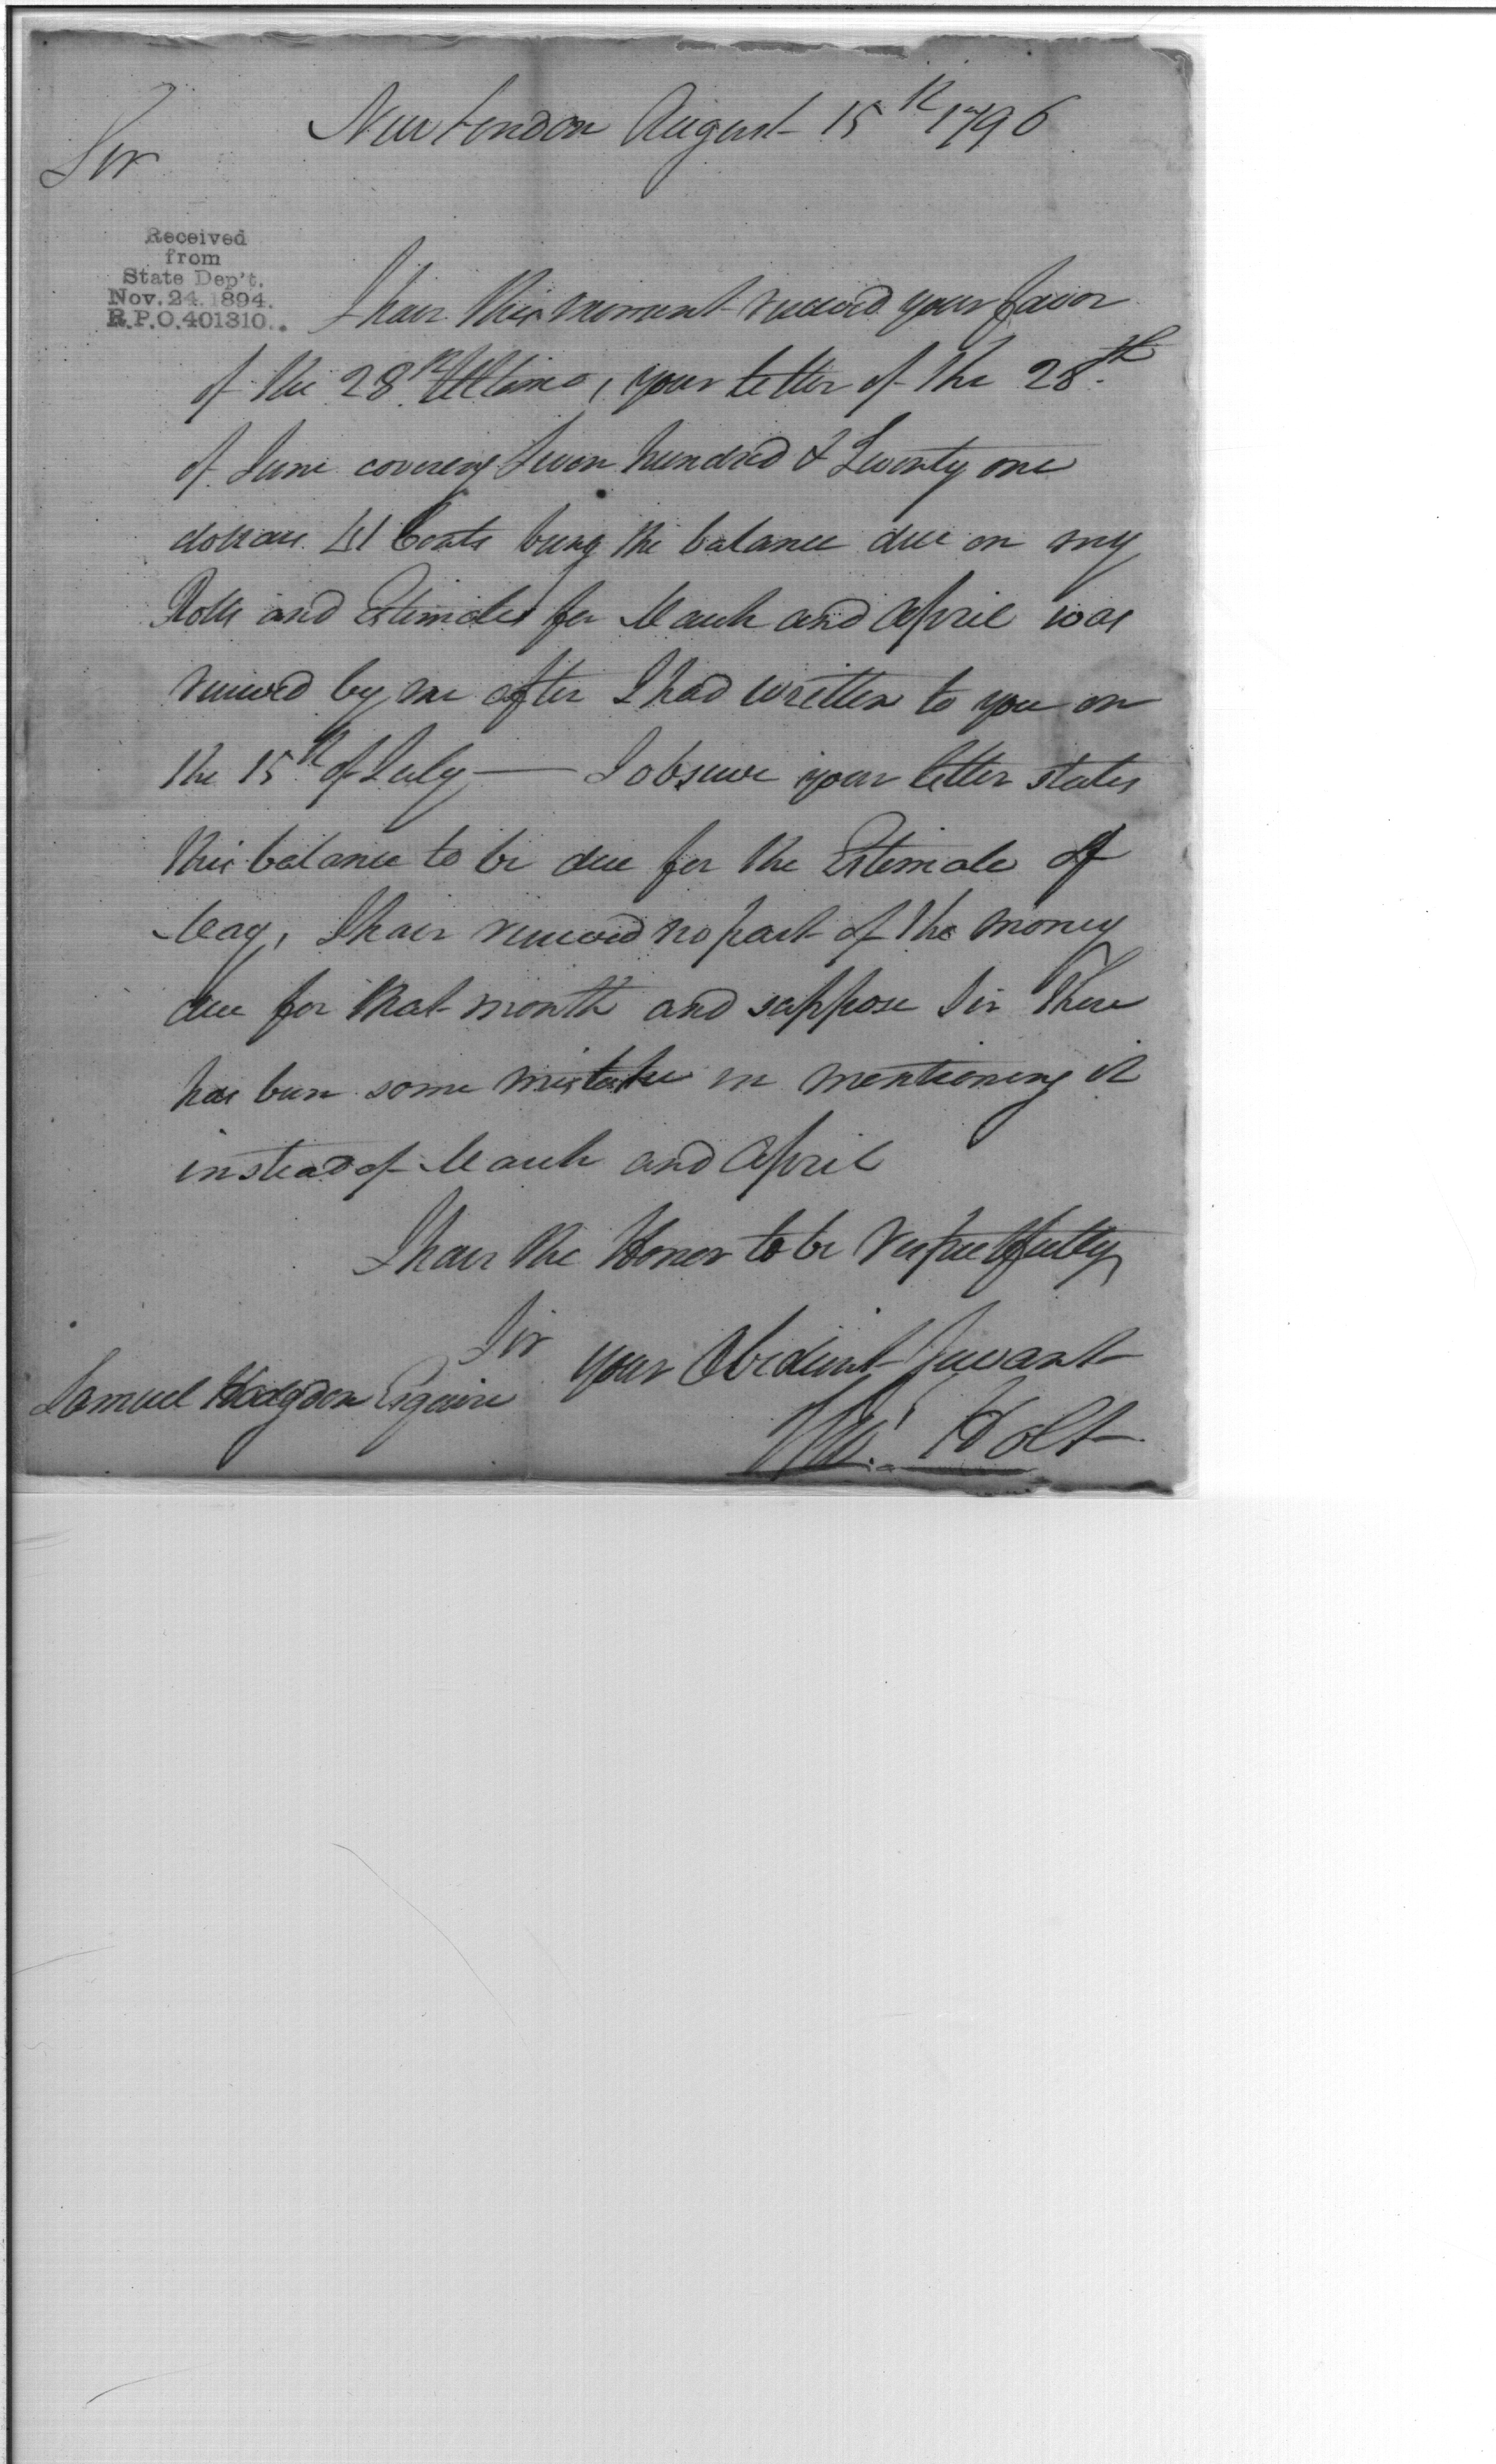 New London August 15th 1796
Sir
Received
from
State Dep't.
Nov. 24. 1894.
R.P.O. 401310.
I have this moment received your favor
of the 28th Ultimo, your letter of the 28th
of June covering Seven hundred & Twenty one
dollars 41 Cents being the balance due on my
Rolls and Estimates for March and April was
received by me after I had written to you on
the 15th of July — I observe your letter states
this balance to be due for the Estimate of
May, I have received no part of the money
due for that month and suppose Sir there
has been some mistake in mentioning it
instead of March and April
I have the Honor to be respectfully
Sir your Obedient Servant
Samuel Hodgdon Esquire
Holt